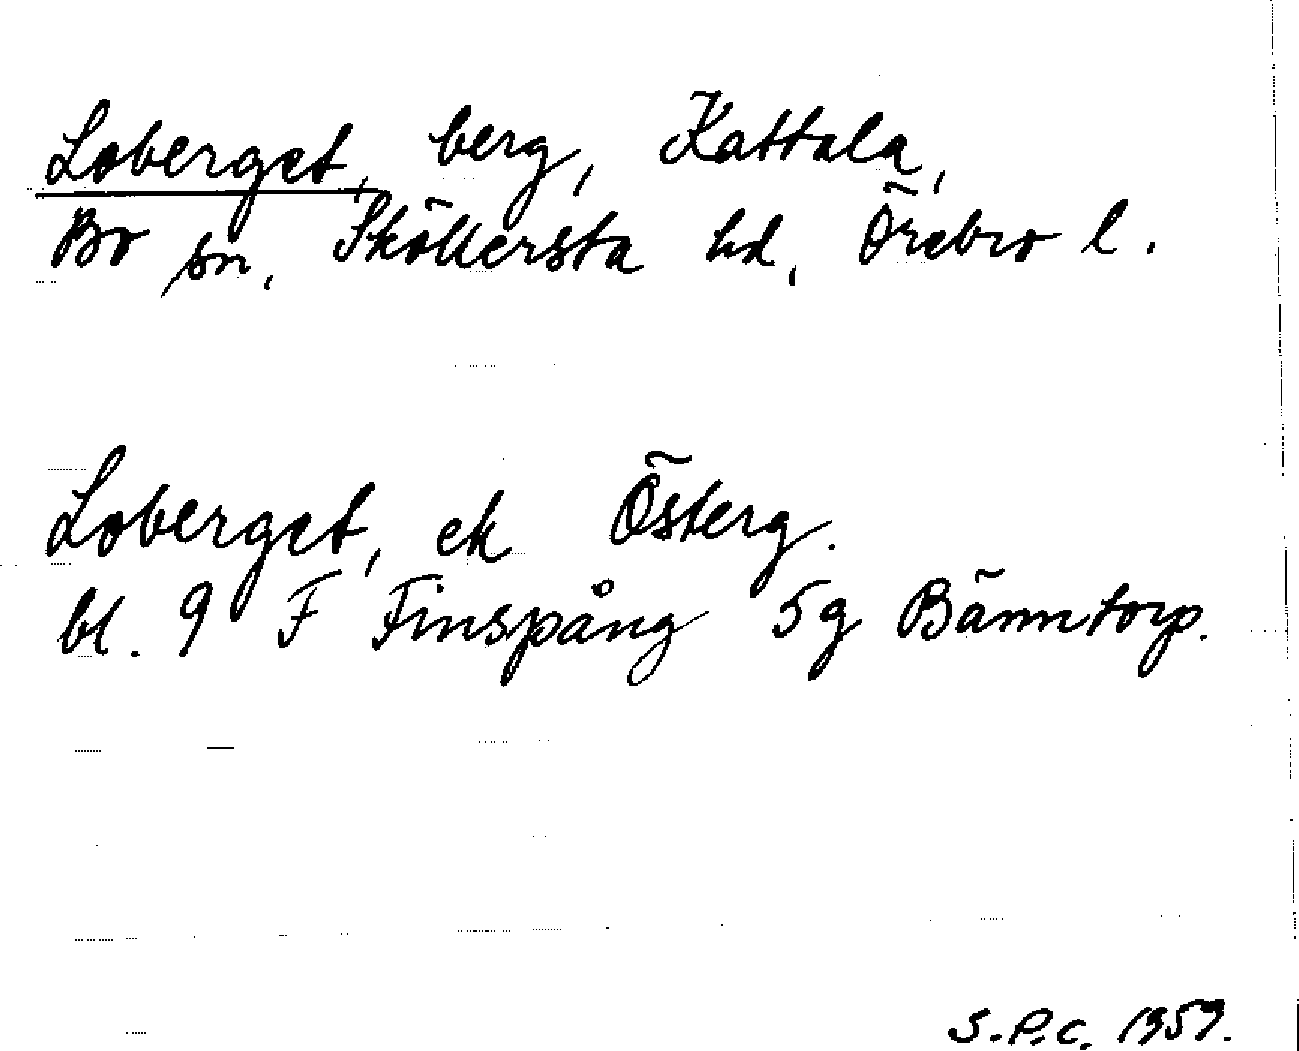 Loberget, berg, Kattala,
Bo sn, Sköllersta hd, Örebro l.
Loberget, ek Österg.
bl. 9 F Finspång 5g Bänntorp.
S.P.C. 1959.